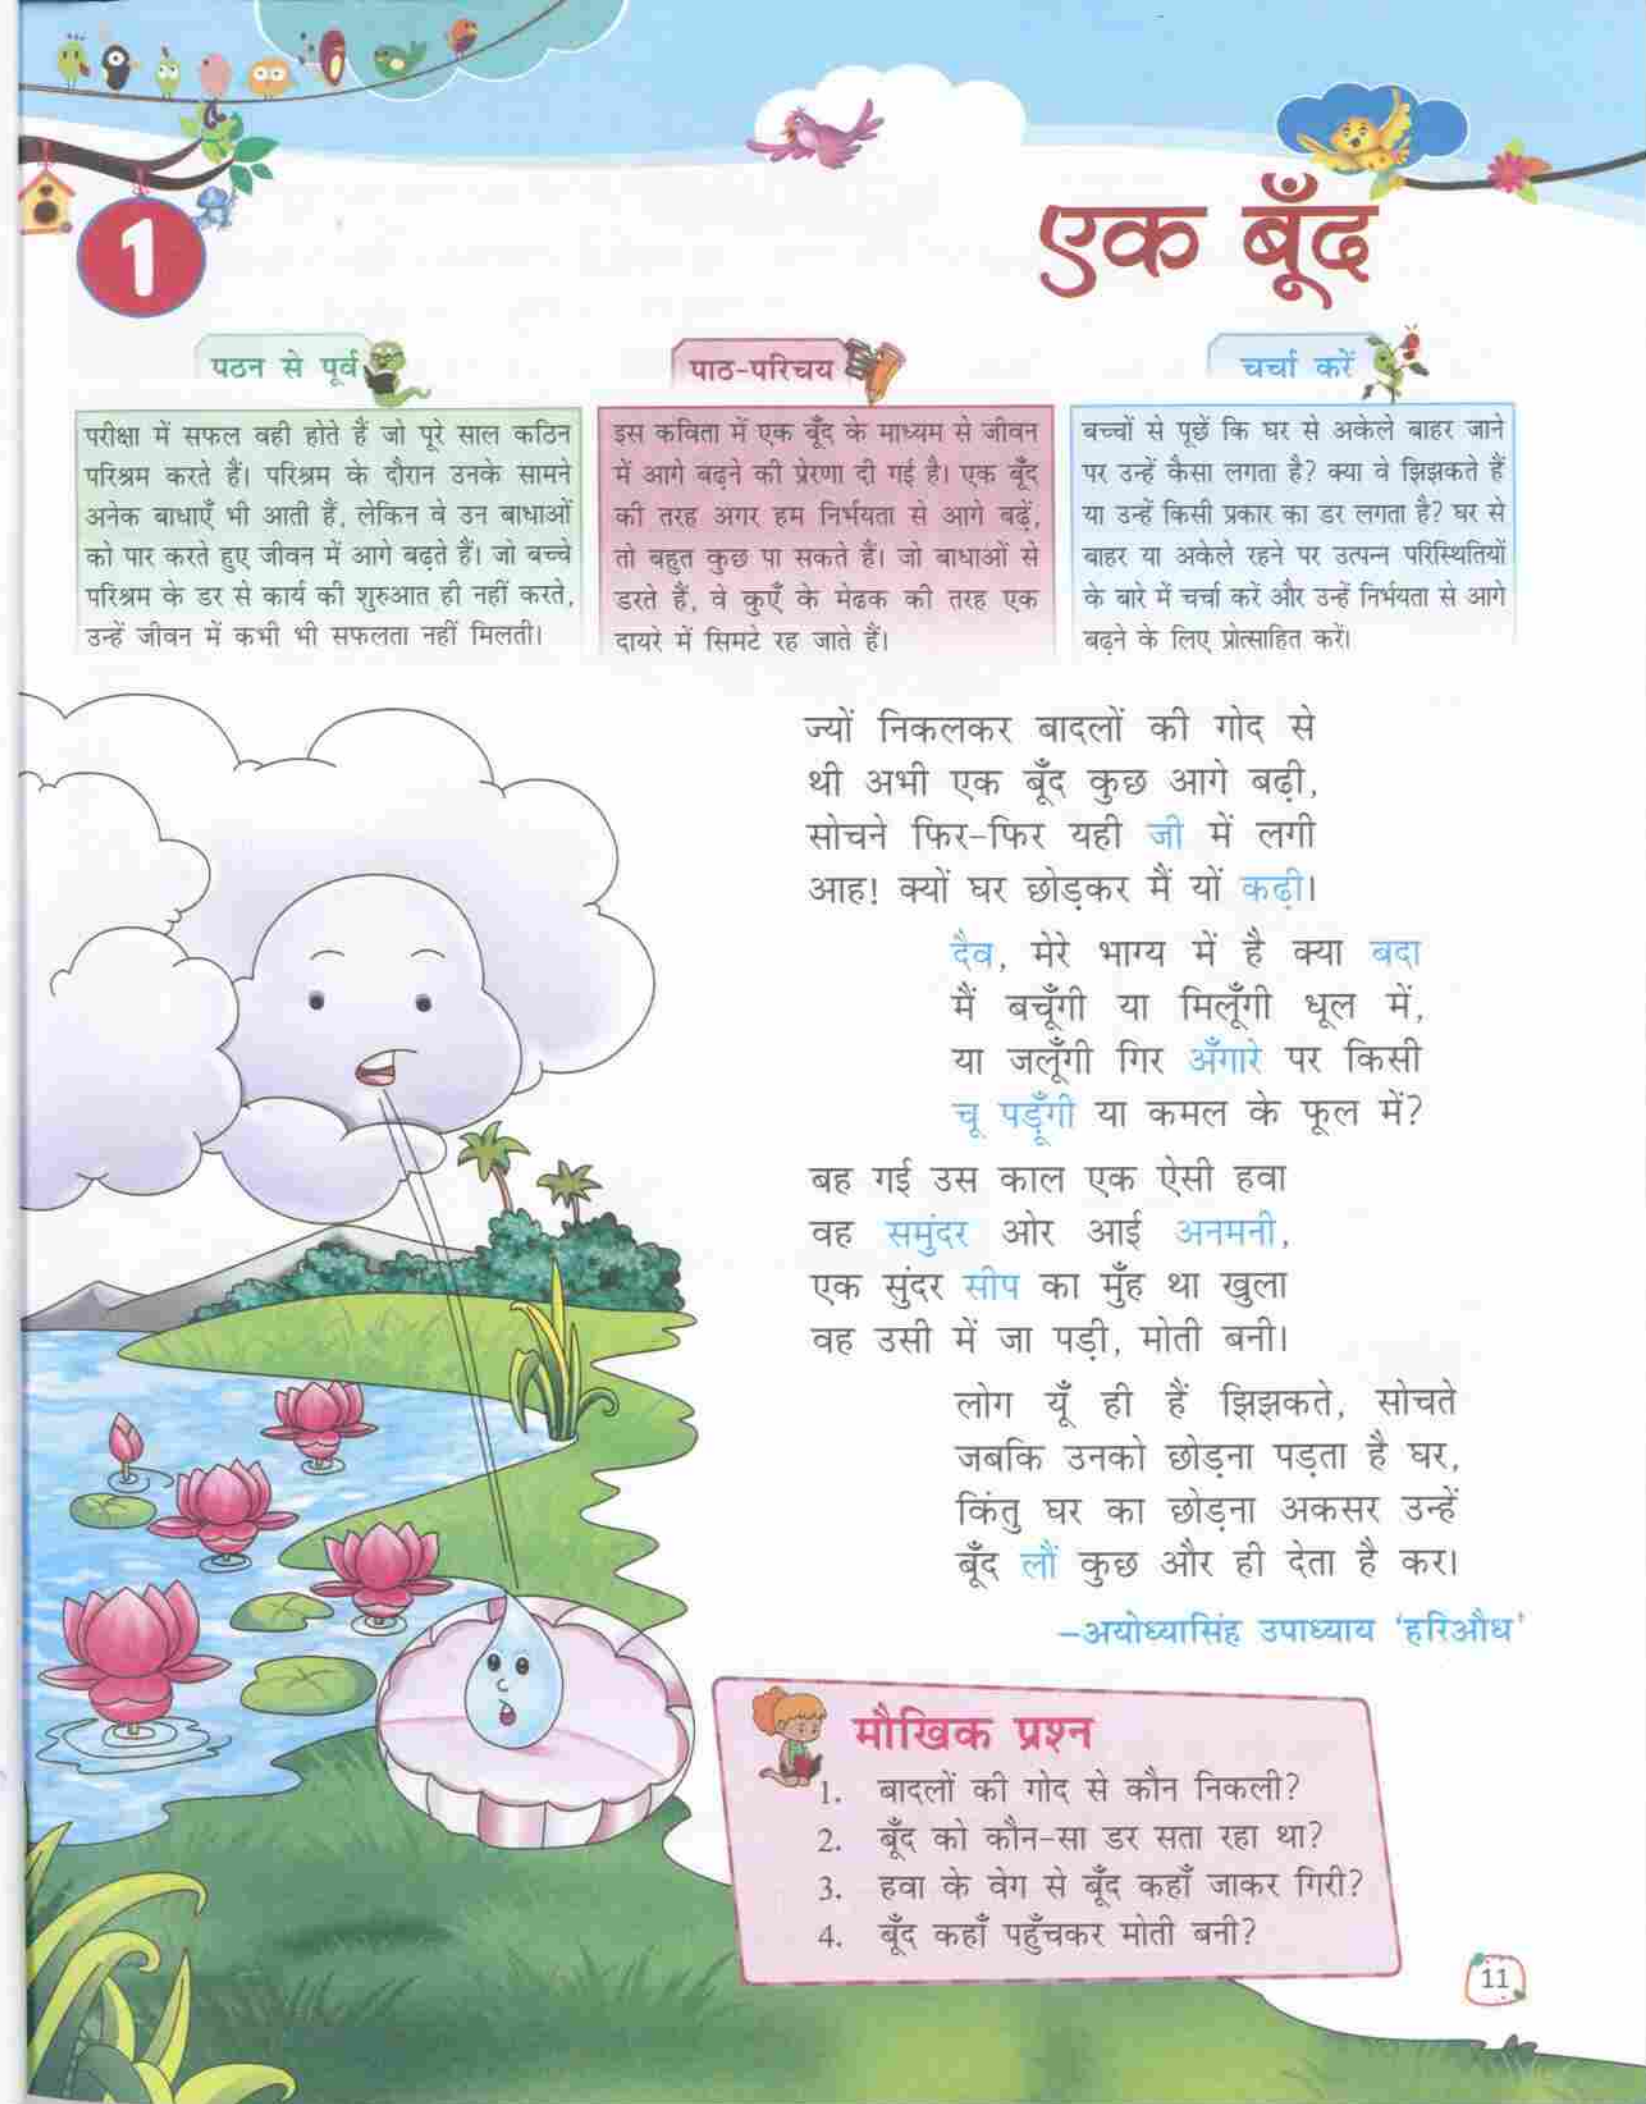 1
एक बूँद
पठन से पूर्व
परीक्षा में सफल वही होते हैं जो पूरे साल कठिन
परिश्रम करते हैं। परिश्रम के दौरान उनके सामने
अनेक बाधाएँ भी आती हैं, लेकिन वे उन बाधाओं
को पार करते हुए जीवन में आगे बढ़ते हैं। जो बच्चे
परिश्रम के डर से कार्य की शुरुआत ही नहीं करते,
उन्हें जीवन में कभी भी सफलता नहीं मिलती।
पाठ-परिचय
इस कविता में एक बूँद के माध्यम से जीवन
में आगे बढ़ने की प्रेरणा दी गई है। एक बूँद
की तरह अगर हम निर्भयता से आगे बढ़ें,
तो बहुत कुछ पा सकते हैं। जो बाधाओं से
डरते हैं, वे कुएँ के मेढक की तरह एक
दायरे में सिमटे रह जाते हैं।
चर्चा करें
बच्चों से पूछें कि घर से अकेले बाहर जाने
पर उन्हें कैसा लगता है? क्या वे झिझकते हैं
या उन्हें किसी प्रकार का डर लगता है? घर से
बाहर या अकेले रहने पर उत्पन्न परिस्थितियों
के बारे में चर्चा करें और उन्हें निर्भयता से आगे
बढ़ने के लिए प्रोत्साहित करें।
ज्यों निकलकर बादलों की गोद से
थी अभी एक बूँद कुछ आगे बढ़ी,
सोचने फिर-फिर यही जी में लगी
आह! क्यों घर छोड़कर मैं यों कढ़ी।
दैव, मेरे भाग्य में है क्या बदा
मैं बचूँगी या मिलूँगी धूल में,
या जलूँगी गिर अँगारे पर किसी
चू पड़ूँगी या कमल के फूल में?
बह गई उस काल एक ऐसी हवा
वह समुंदर ओर आई अनमनी,
एक सुंदर सीप का मुँह था खुला
वह उसी में जा पड़ी, मोती बनी।
लोग यूँ ही हैं झिझकते, सोचते
जबकि उनको छोड़ना पड़ता है घर,
किंतु घर का छोड़ना अकसर उन्हें
बूँद लौं कुछ और ही देता है कर।
–अयोध्यासिंह उपाध्याय 'हरिऔध'
मौखिक प्रश्न
1. बादलों की गोद से कौन निकली?
2. बूँद को कौन-सा डर सता रहा था?
3. हवा के वेग से बूँद कहाँ जाकर गिरी?
4. बूँद कहाँ पहुँचकर मोती बनी?
11